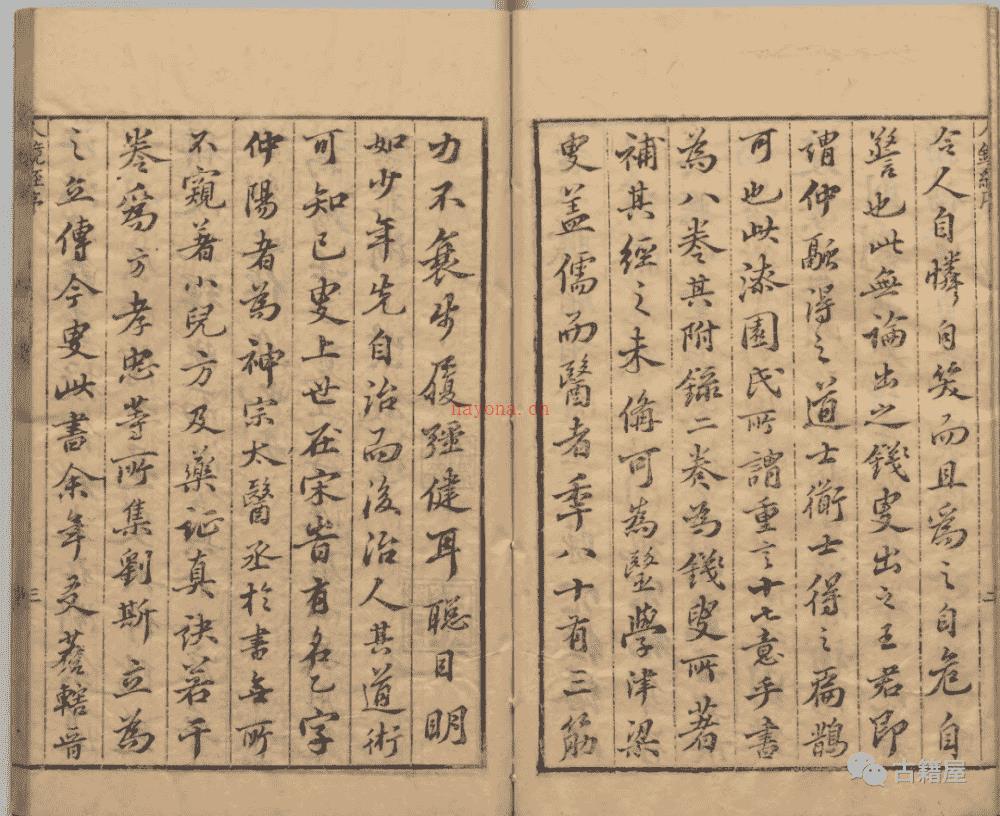 令人自憐自笑而且為之自危自
警也此無論出之錢叟出之王君即
謂仲馳得之道士衛士得之扁鵲
可也此漆園氏所謂重言十七意乎書
為八卷其附錄二卷為錢叟所著
補其經之未備可為醫學津梁
叟盖儒而醫者年八十有三筋
力不衰步履強健耳聰目明
如少年先自治而後治人其道術
可知已叟上世在宋昔有名乙字
仲陽者為神宗太醫丞於書無所
不窺著小兒方及藥証真訣若干
卷為方孝忠等所集劉斯立為
之立傳今叟此書余年友轄晉
人鏡經序
三
二
hayona.cn
古籍屋